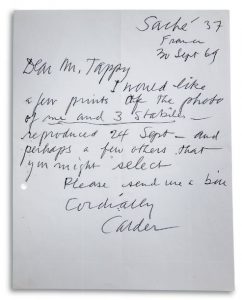 Saché 37
France
30 Sept 69
Dear M. Tappy
I would like
a few prints of the photo
of me and 3 Stabiles –
reproduced 24 Sept – and
perhaps a few others that
you might select
Please send me a bill
Cordially
Calder